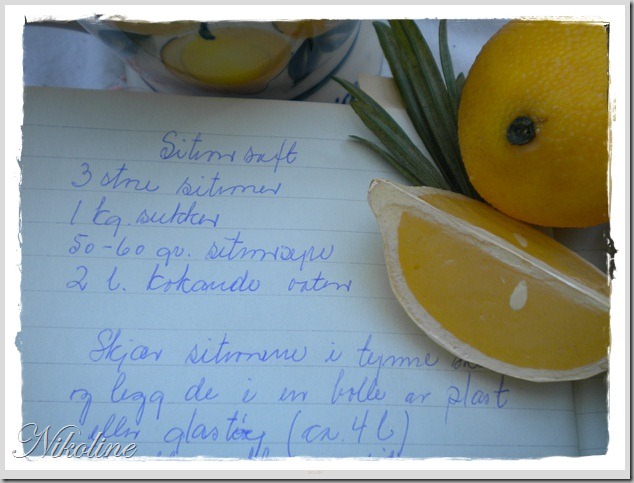 Sitronsaft
3 store sitroner
1 kg. sukker
50-60 gr. sitronsyre
2 l. kokande vatn
Skjær sitronene i tynne
og legg de i en bolle av plast
eller glastøy (ca. 4 l)
Nikoline